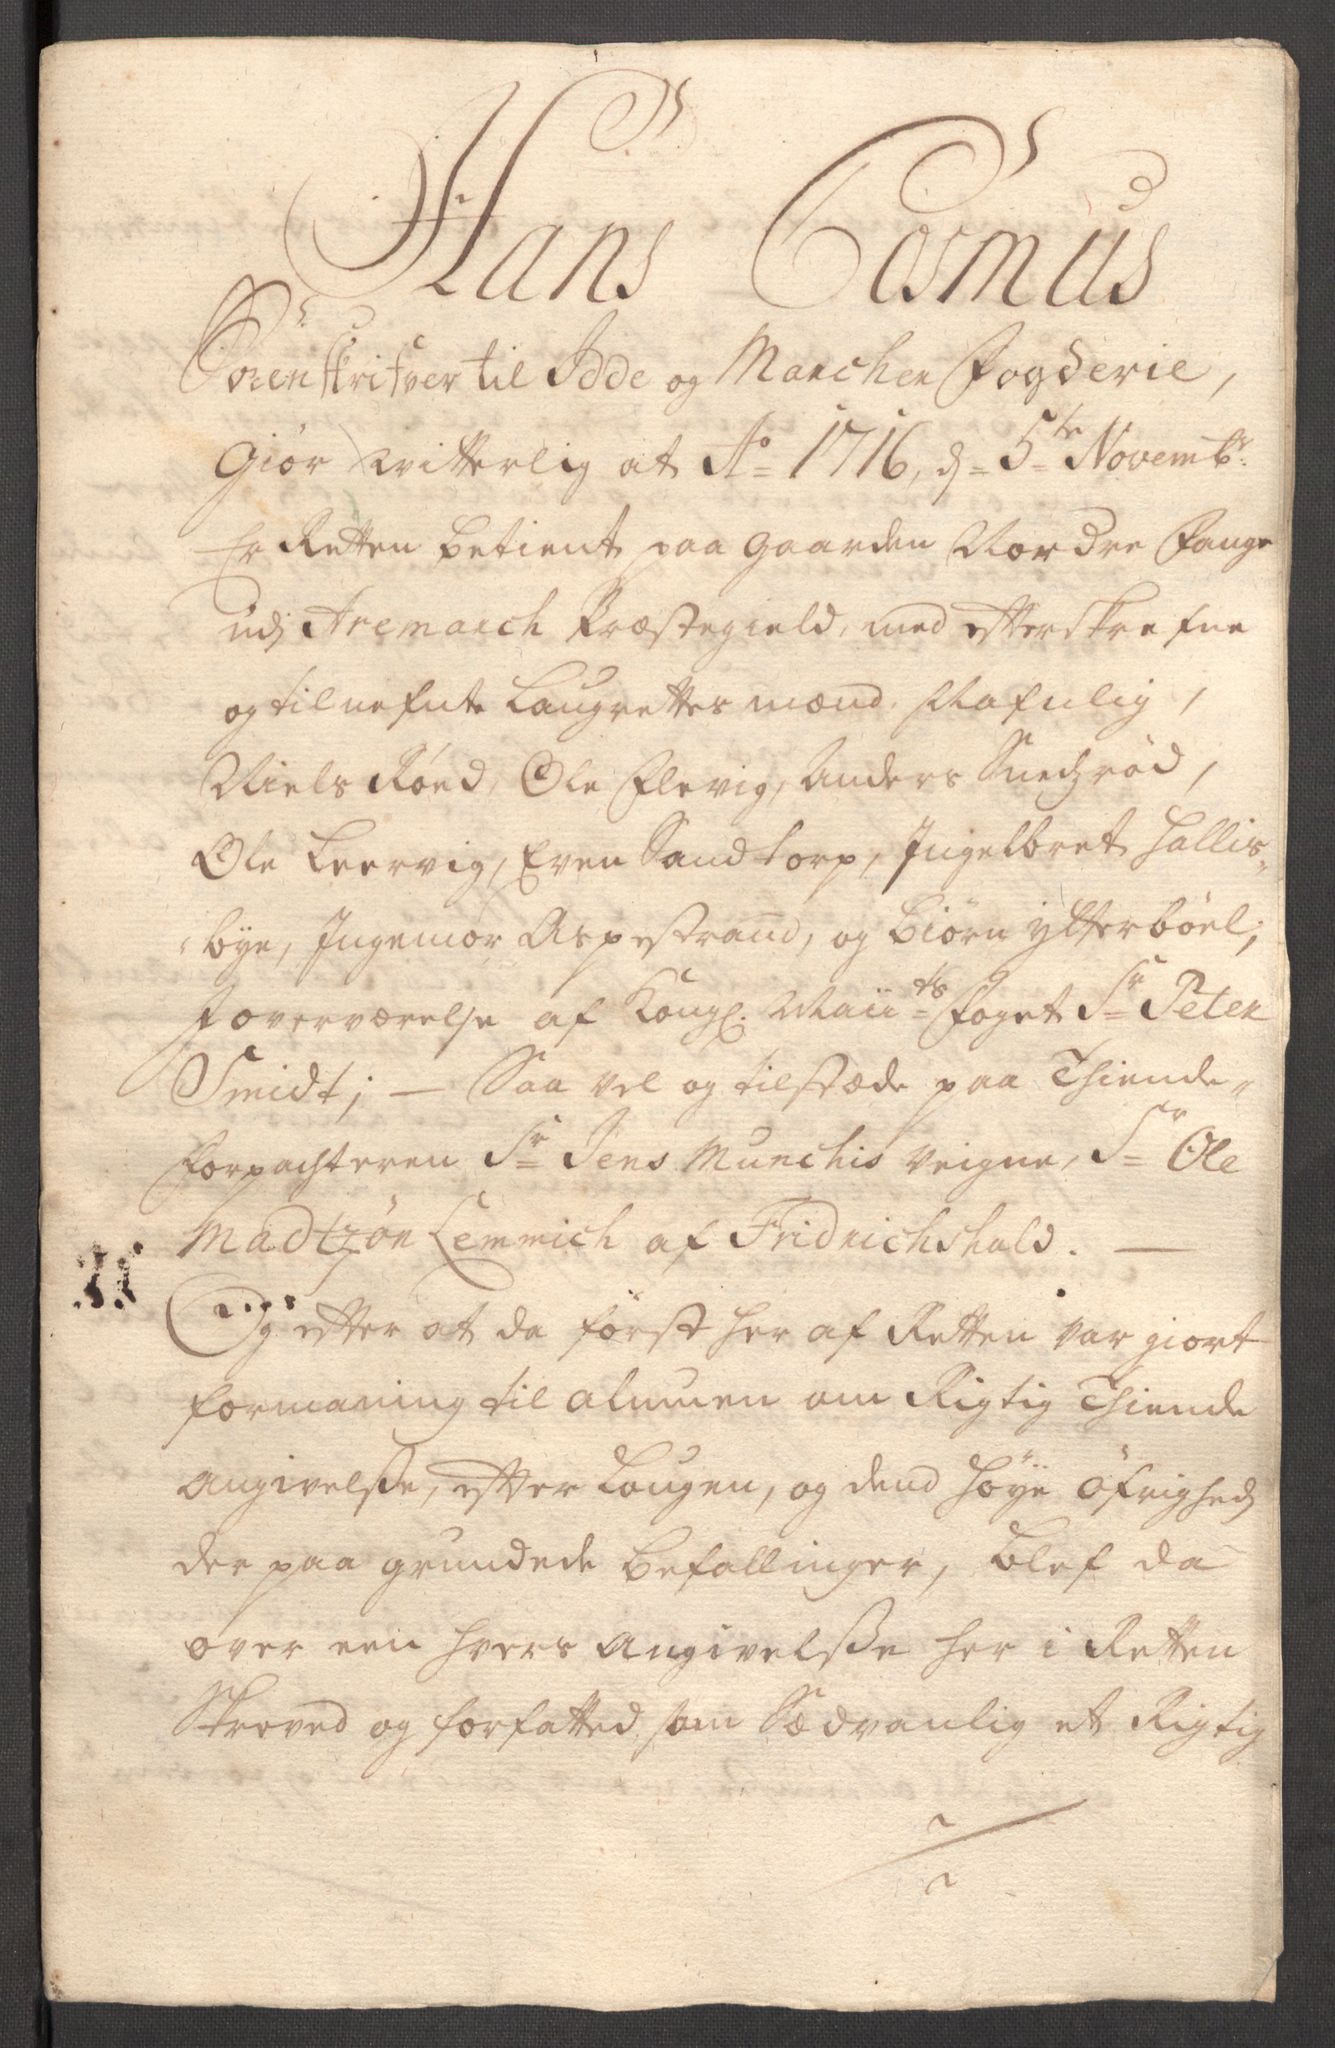 Hans Cosmus
Sorenskrifver til Idde og Marcher Fogderie,
Giør Vitterlig at Ao 1716, d= 5te Novembr:
Er Retten betient paa gaarden Nordre Fange
udj Aremarch Præstegield, med efterskrefne
og tilnefnte Laugrettesmænd, Nafnlig,
Niels Røed, Ole Elevig, Anders Snechrød,
Ole Leervig, Even Sandtorp, Ingelbret Hallis-
bye, Ingemor Aspestrand, og Biørn Ytterbøel;
J overværelse af Kongl. Maiits Foget Sr Peter
Smidt; — Saa vel og tilstæde paa Thiende-
Forpachteren Sr Jens Munchis Veigne, Sr Ole
Madtzøn Lemmich af Fridrichshald. —
Og efter at da først her af Retten var giort
formaning til almuen om Rigtig Thiende
Angivelsse, efter Lougen, og dend høye Øfrigheds
der paa grundede befallinger, blef da
over een hvers Angivelsse her i Retten
Skreved og forfatted, som Sædvanlig et Rigtig